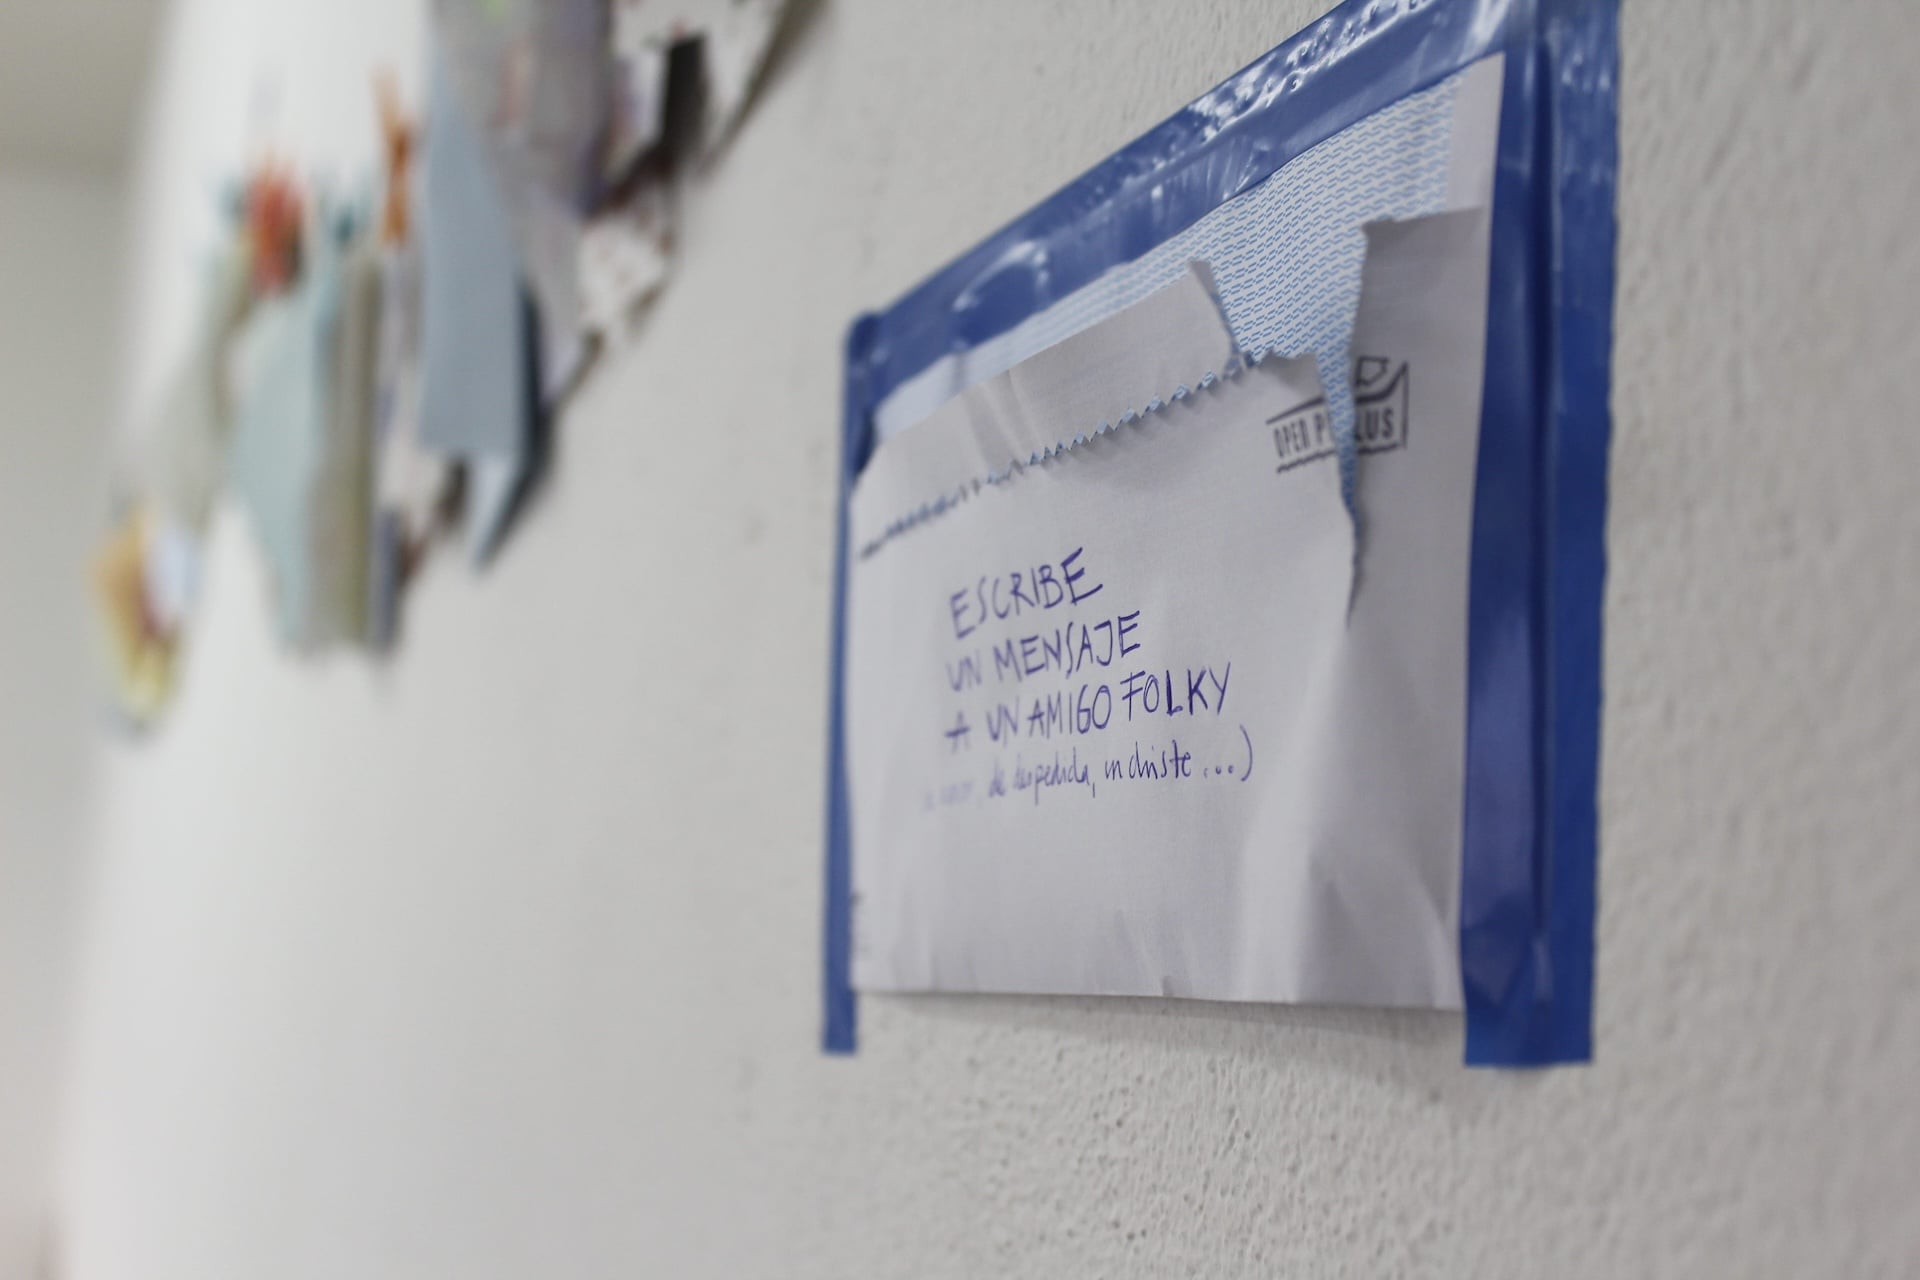 OPEN PLUS
ESCRIBE
UN MENSAJE
A UN AMIGO FOLKY
de despedida, un chiste ...)